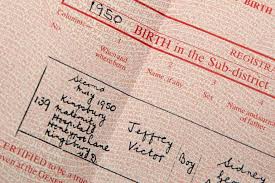 1950
REGISTRA
BIRTH in the Sub-district
Columns:-
1
2
3
4
No.
When and
where born
Name, if any
Sex
Name and surname
of father
139
Second
May 1950
Kingsbury
Maternity
Hospital
Honeypot Lane
Kingsbury
U.D.
Jeffrey
Victor
Boy
Sidney
CERTIFIED to be a true